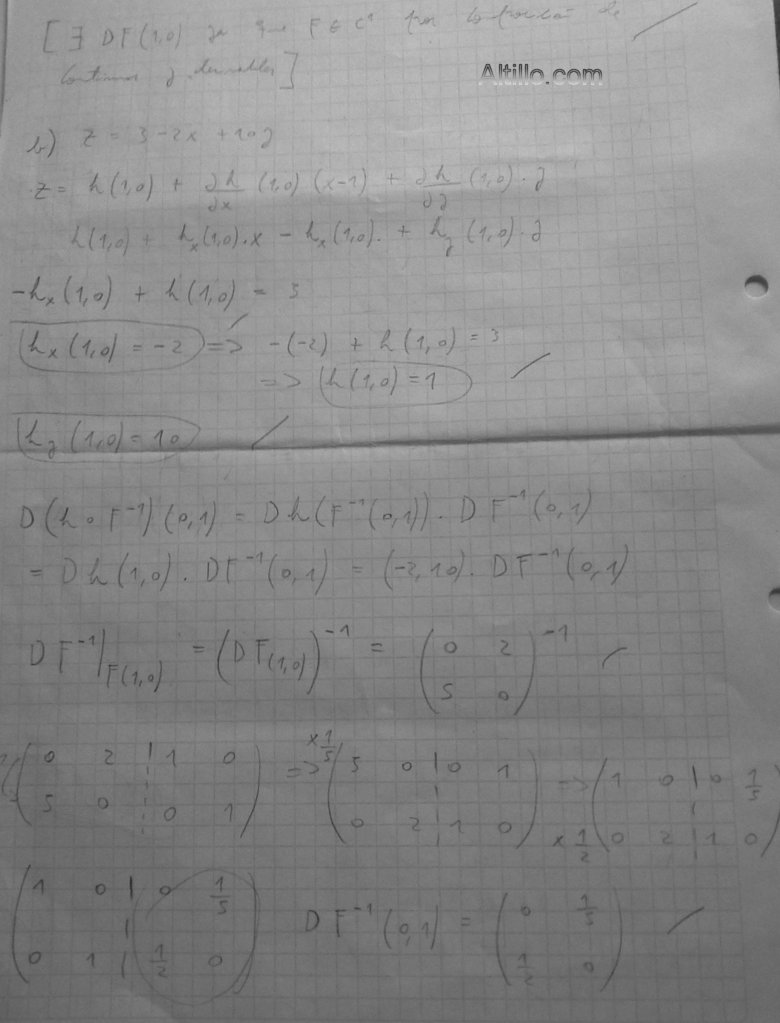 [∃ DF(1,0) ya que F ∈ C¹ por de
continuas y derivables]
Altillo.com
b) z = 3 - 2x + 10y
z = h(1,0) + ∂h/∂x (1,0) (x-1) + ∂h/∂y (1,0) · y
h(1,0) + hx(1,0).x - hx(1,0). + hy(1,0).y
-hx(1,0) + h(1,0) = 3
hx(1,0) = -2 => -(-2) + h(1,0) = 3
=> h(1,0) = 1
hy(1,0) = 10
D(h∘F⁻¹)(0,1) = Dh(F⁻¹(0,1)) . DF⁻¹(0,1)
= Dh(1,0) . DF⁻¹(0,1) = (-2,10) . DF⁻¹(0,1)
DF⁻¹|F(1,0) = (DF(1,0))⁻¹ = (0 2 5 0)⁻¹
(0 2 | 1 0 5 0 | 0 1) => x 1/5 (5 0 | 0 1 0 2 | 1 0) => x 1/2 (1 0 | 0 1/5 0 2 | 1 0)
(1 0 | 0 1/5 0 1 | 1/2 0) DF⁻¹(0,1) = (0 1/5 1/2 0)